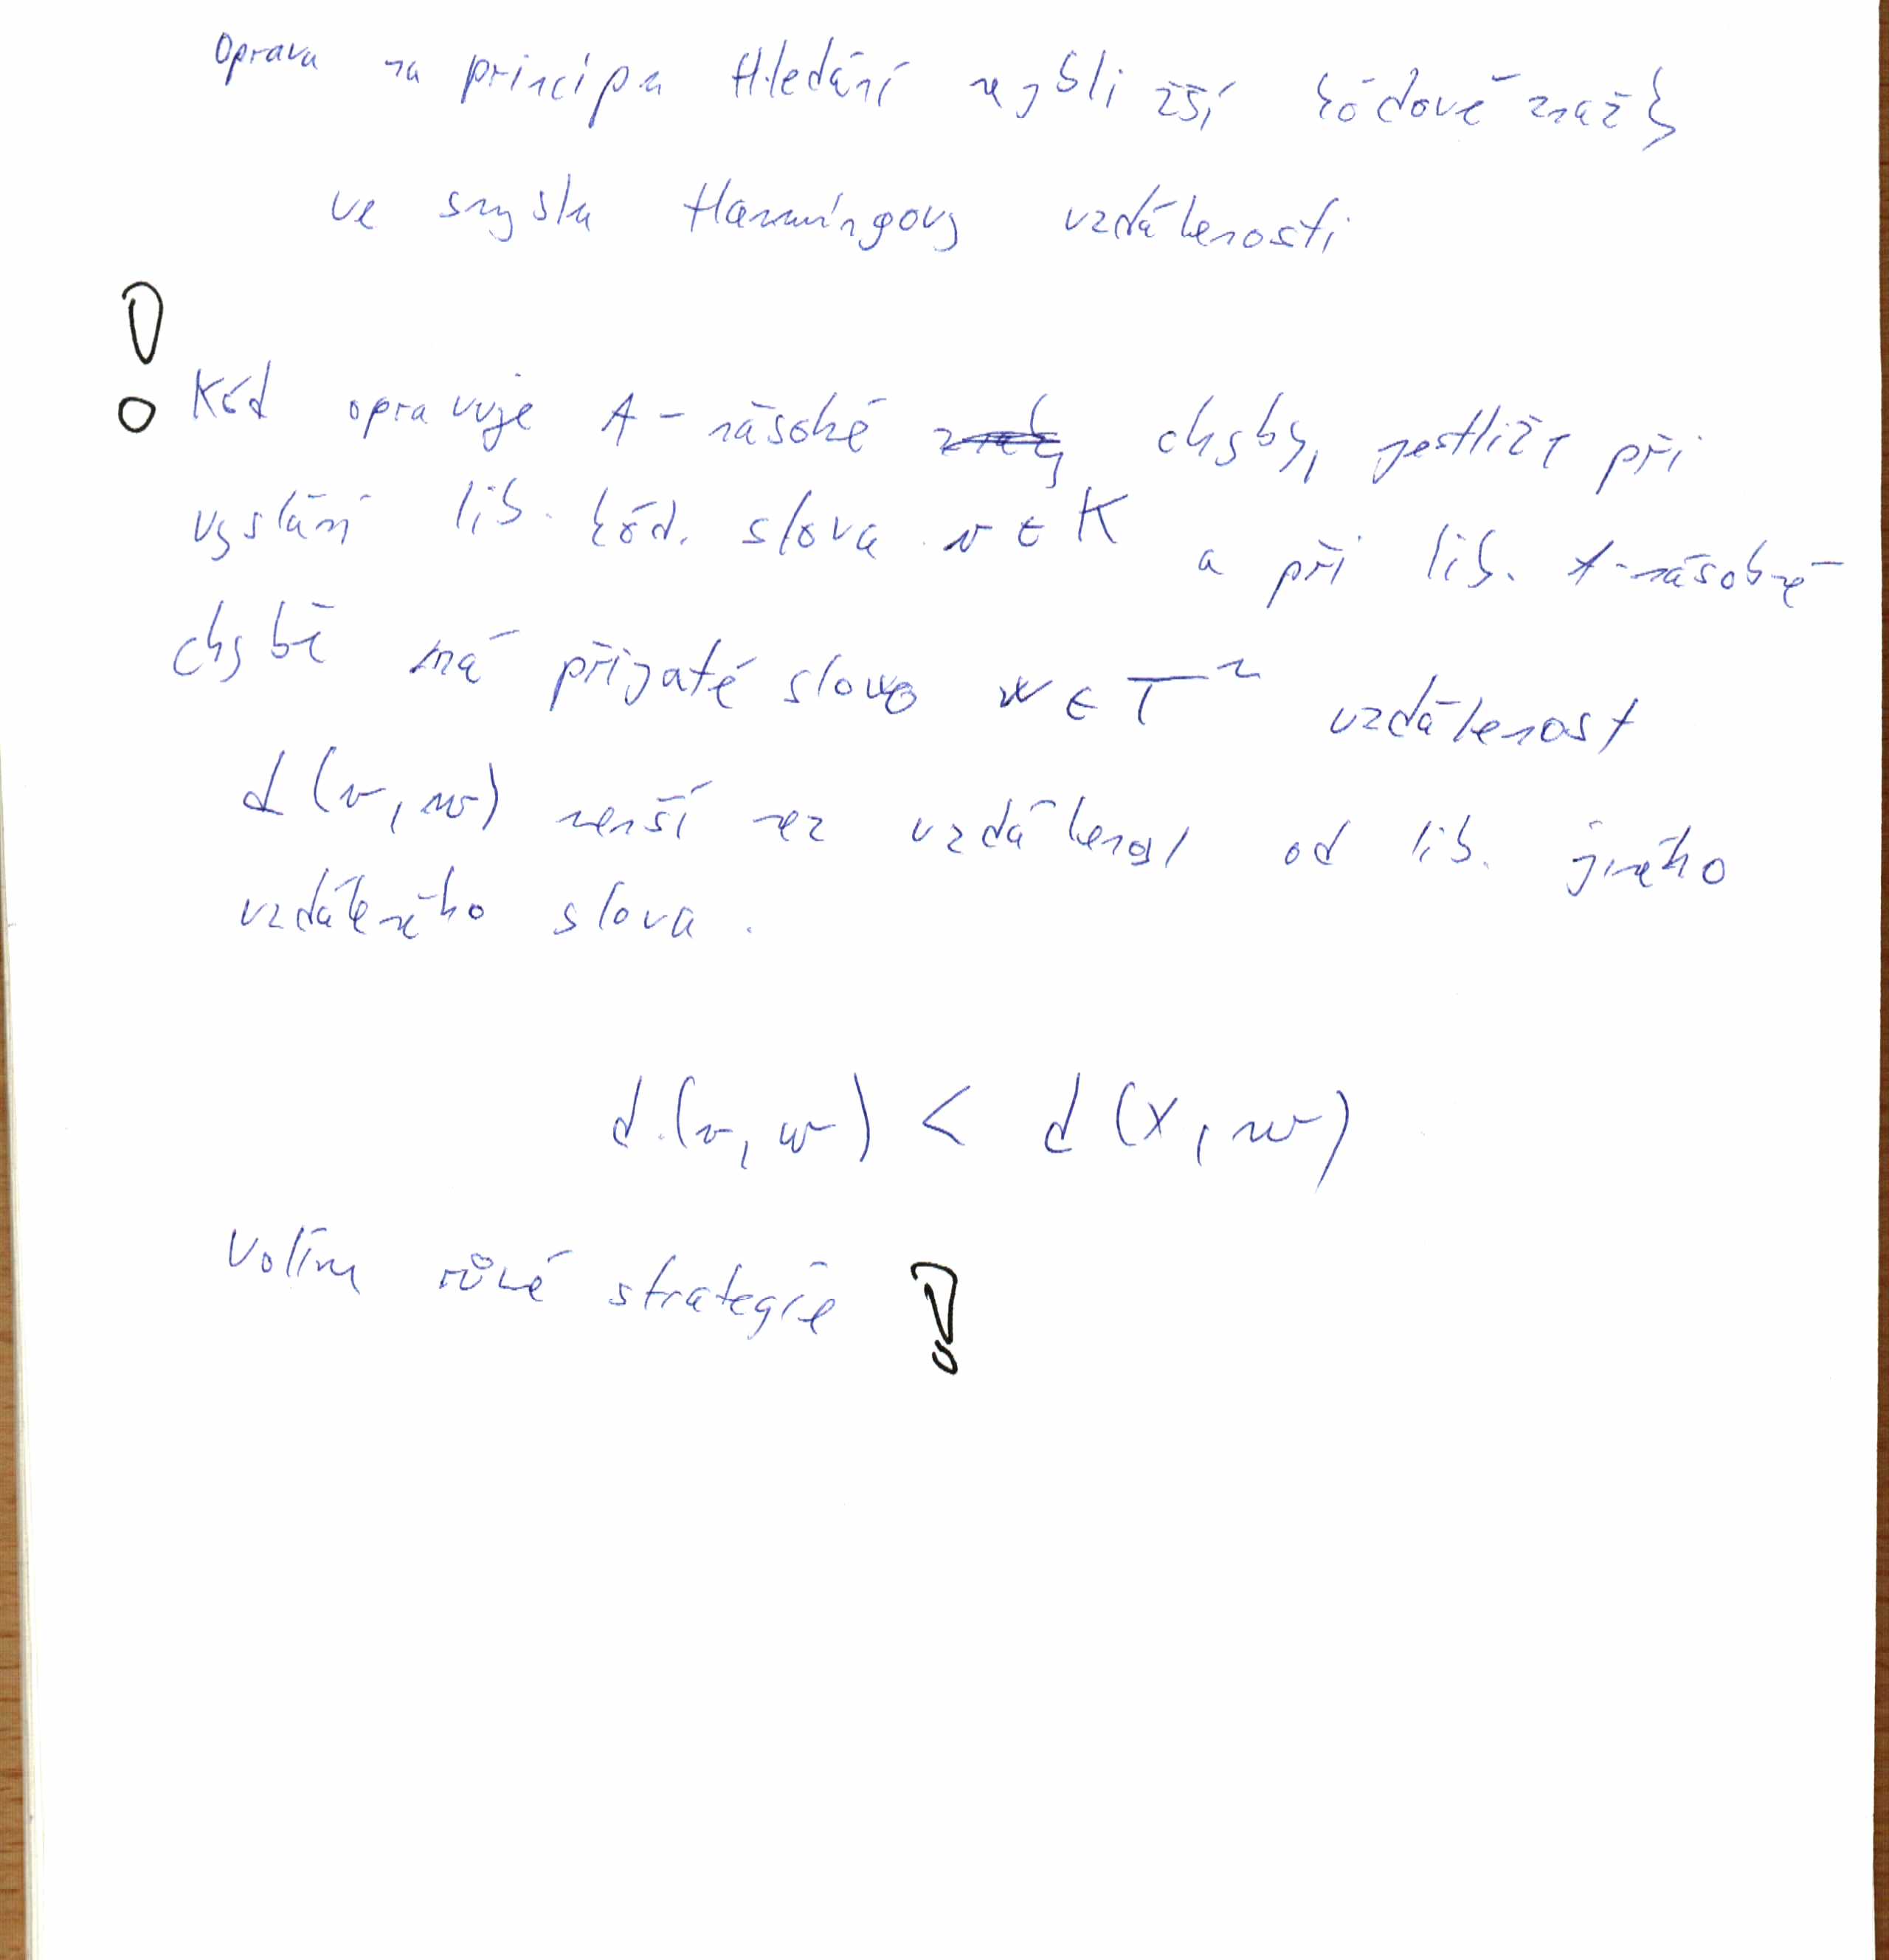 Oprava na principu Hledání nejbližší kódové značky
ve smyslu Hammingovy vzdálenosti
! Kód opravuje t-násobné chyby, jestliže při
vyslání lib. kód. slova v ∈ K a při lib. t-násobné
chybě má přijaté slovo w ∈ Tⁿ vzdálenost
d(v, w) menší než vzdálenost od lib. jiného
vzdáleného slova.
d(v, w) < d(x, w)
Volím různé strategie !